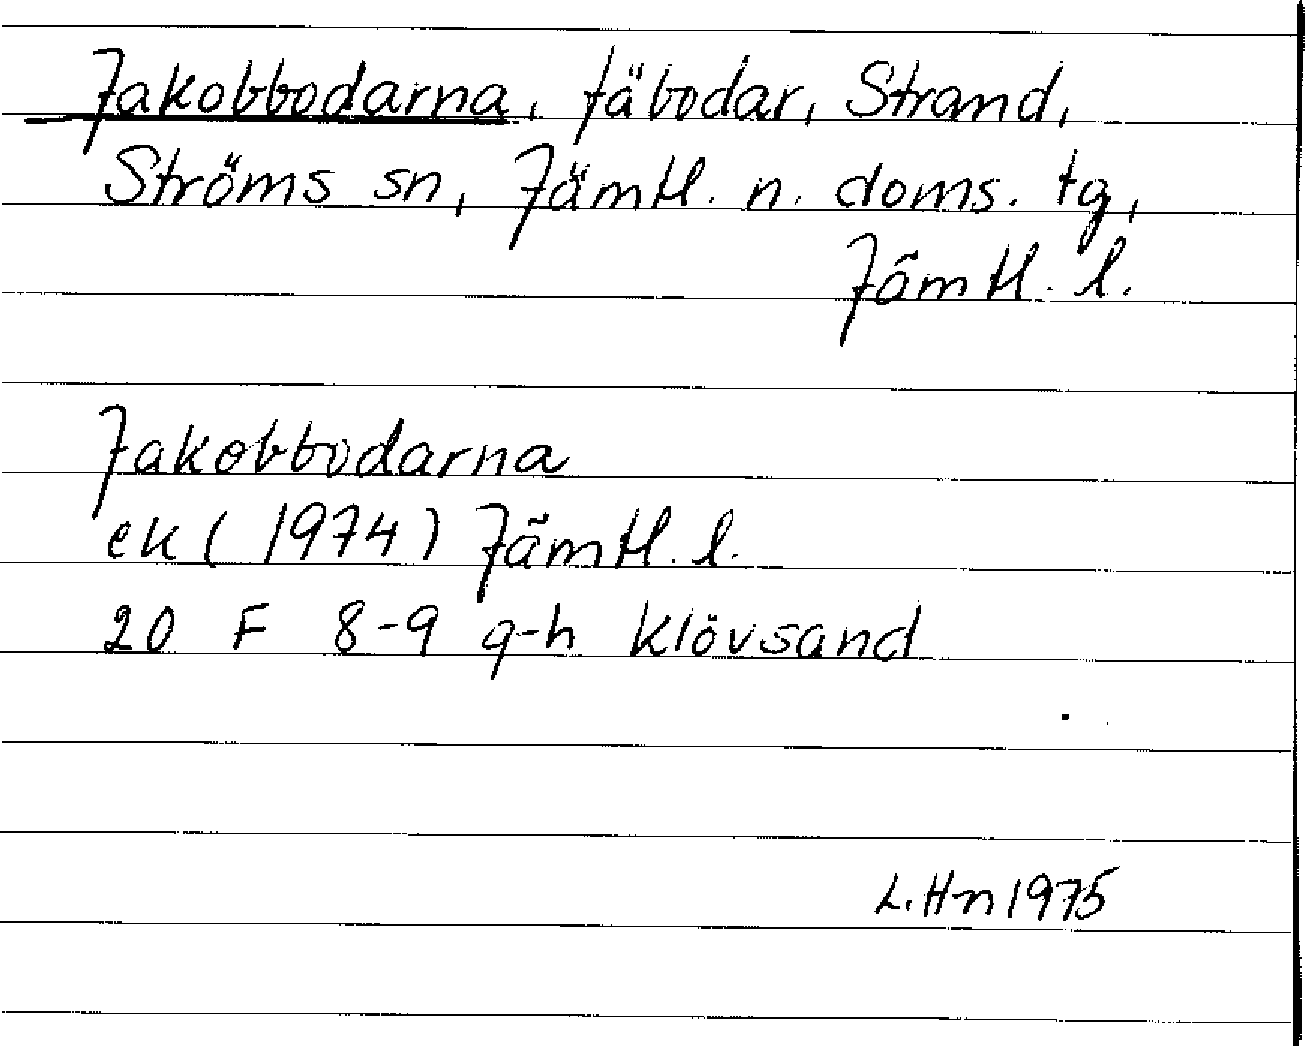 Jakobbodarna, fäbodar, Strand,
Ströms sn, Jämtl. n. doms. tg,
Jämtl. l.
Jakobbodarna
ek (1974) Jämtl. l.
20 F 8-9 g-h Klövsand
L. Hn 1975